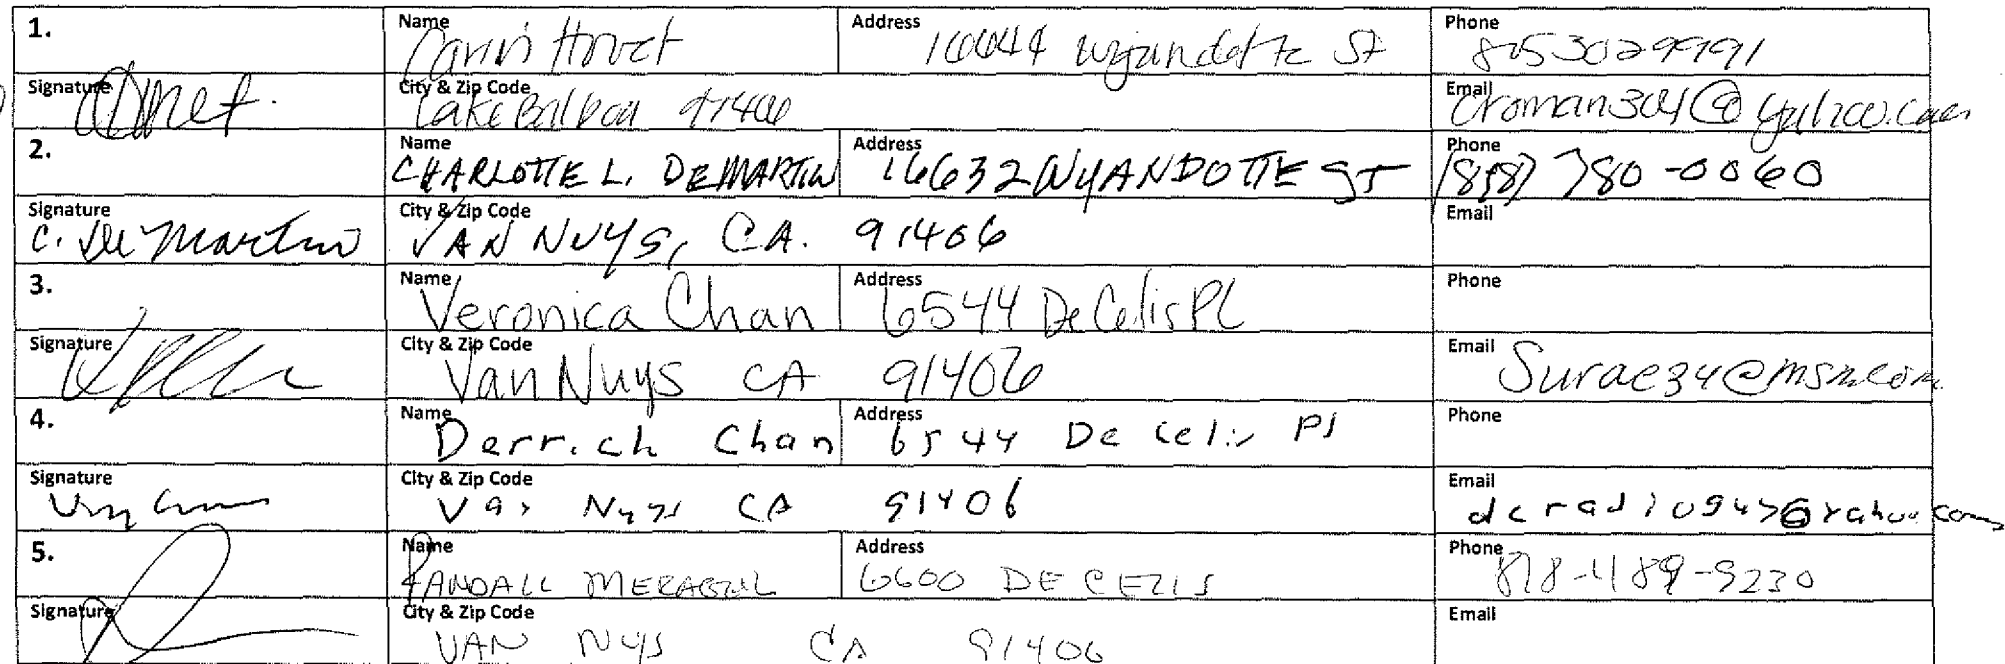 1. Name Carin Hovet Address 16644 Wyandotte St Phone 8053029991
Signature City & Zip Code Lake Balboa 91406 Email croman304@yahoo.com
2. Name CHARLOTTE L. DEMARTIN Address 16632 WYANDOTTE ST Phone (818) 780-0060
Signature C. De Martin City & Zip Code VAN NUYS, CA. 91406 Email
3. Name Veronica Chan Address 6544 De Celis Pl Phone
Signature City & Zip Code Van Nuys CA 91406 Email Surae34@msn.com
4. Name Derrick Chan Address 6544 De Celis Pl Phone
Signature City & Zip Code Van Nuys CA 91406 Email dcradio947@yahoo.com
5. Name RANDALL Address 6600 DE CELIS Phone 818-489-9230
Signature City & Zip Code VAN NUYS CA 91406 Email